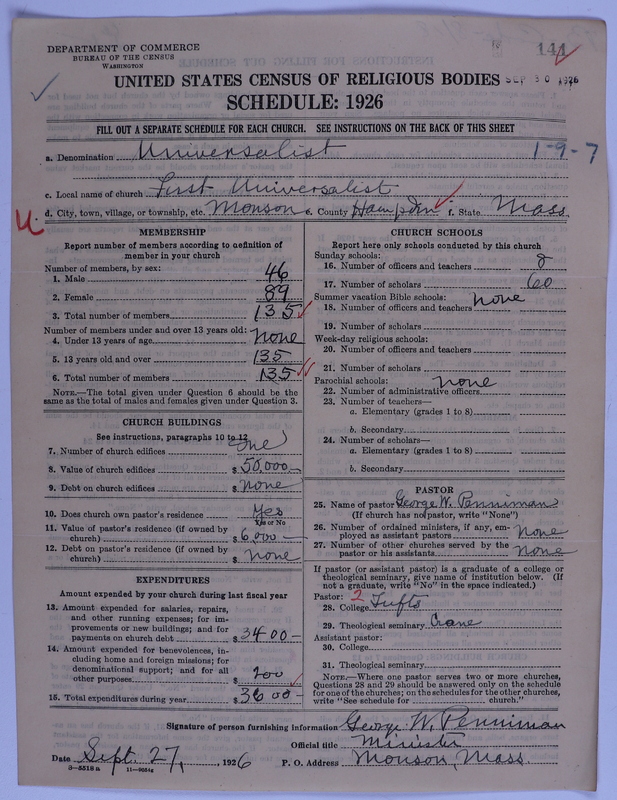 DEPARTMENT OF COMMERCE
BUREAU OF THE CENSUS
WASHINGTON
144
UNITED STATES CENSUS OF RELIGIOUS BODIES SEP 30 1926
SCHEDULE: 1926
FILL OUT A SEPARATE SCHEDULE FOR EACH CHURCH. SEE INSTRUCTIONS ON THE BACK OF THIS SHEET
a. Denomination Universalist 1-9-7
c. Local name of church First Universalist
d. City, town, village, or township, etc. Monson e. County Hampden f. State Mass.
U.
MEMBERSHIP
Report number of members according to definition of
member in your church
Number of members, by sex:
1. Male 46
2. Female 89
3. Total number of members 135
Number of members under and over 13 years old:
4. Under 13 years of age None
5. 13 years old and over 135
6. Total number of members 135
NOTE.—The total given under Question 6 should be the
same as the total of males and females given under Question 3.
CHURCH BUILDINGS
See instructions, paragraphs 10 to 12
7. Number of church edifices one
8. Value of church edifices $ 50,000—
9. Debt on church edifices $ None
10. Does church own pastor's residence? Yes
Yes or No
11. Value of pastor's residence (if owned by
church) $ 6,000—
12. Debt on pastor's residence (if owned by
church) $ None
EXPENDITURES
Amount expended by your church during last fiscal year
13. Amount expended for salaries, repairs,
and other running expenses; for im-
provements or new buildings; and for
payments on church debt $ 3400—
14. Amount expended for benevolences, in-
cluding home and foreign missions; for
denominational support; and for all
other purposes $ 200
15. Total expenditures during year $ 3600—
CHURCH SCHOOLS
Report here only schools conducted by this church
Sunday schools:
16. Number of officers and teachers 8
17. Number of scholars 60
Summer vacation Bible schools: None
18. Number of officers and teachers
19. Number of scholars
Week-day religious schools:
20. Number of officers and teachers
21. Number of scholars
Parochial schools: None
22. Number of administrative officers
23. Number of teachers—
a. Elementary (grades 1 to 8)
b. Secondary
24. Number of scholars—
a. Elementary (grades 1 to 8)
b. Secondary
PASTOR
25. Name of pastor George W. Penniman
(If church has no pastor, write "None")
26. Number of ordained ministers, if any, em-
ployed as assistant pastors None
27. Number of other churches served by the
pastor or his assistants None
If pastor (or assistant pastor) is a graduate of a college or
theological seminary, give name of institution below. (If
not a graduate, write "No" in the space indicated.)
Pastor: 2
28. College Tufts
29. Theological seminary Crane
Assistant pastor:
30. College
31. Theological seminary
NOTE.—Where one pastor serves two or more churches,
Questions 28 and 29 should be answered only on the schedule
for one of the churches; on the schedules for the other churches,
write "See schedule for church."
Signature of person furnishing information George W. Penniman
Official title Minister
Date Sept. 27, 1926 P. O. Address Monson, Mass.